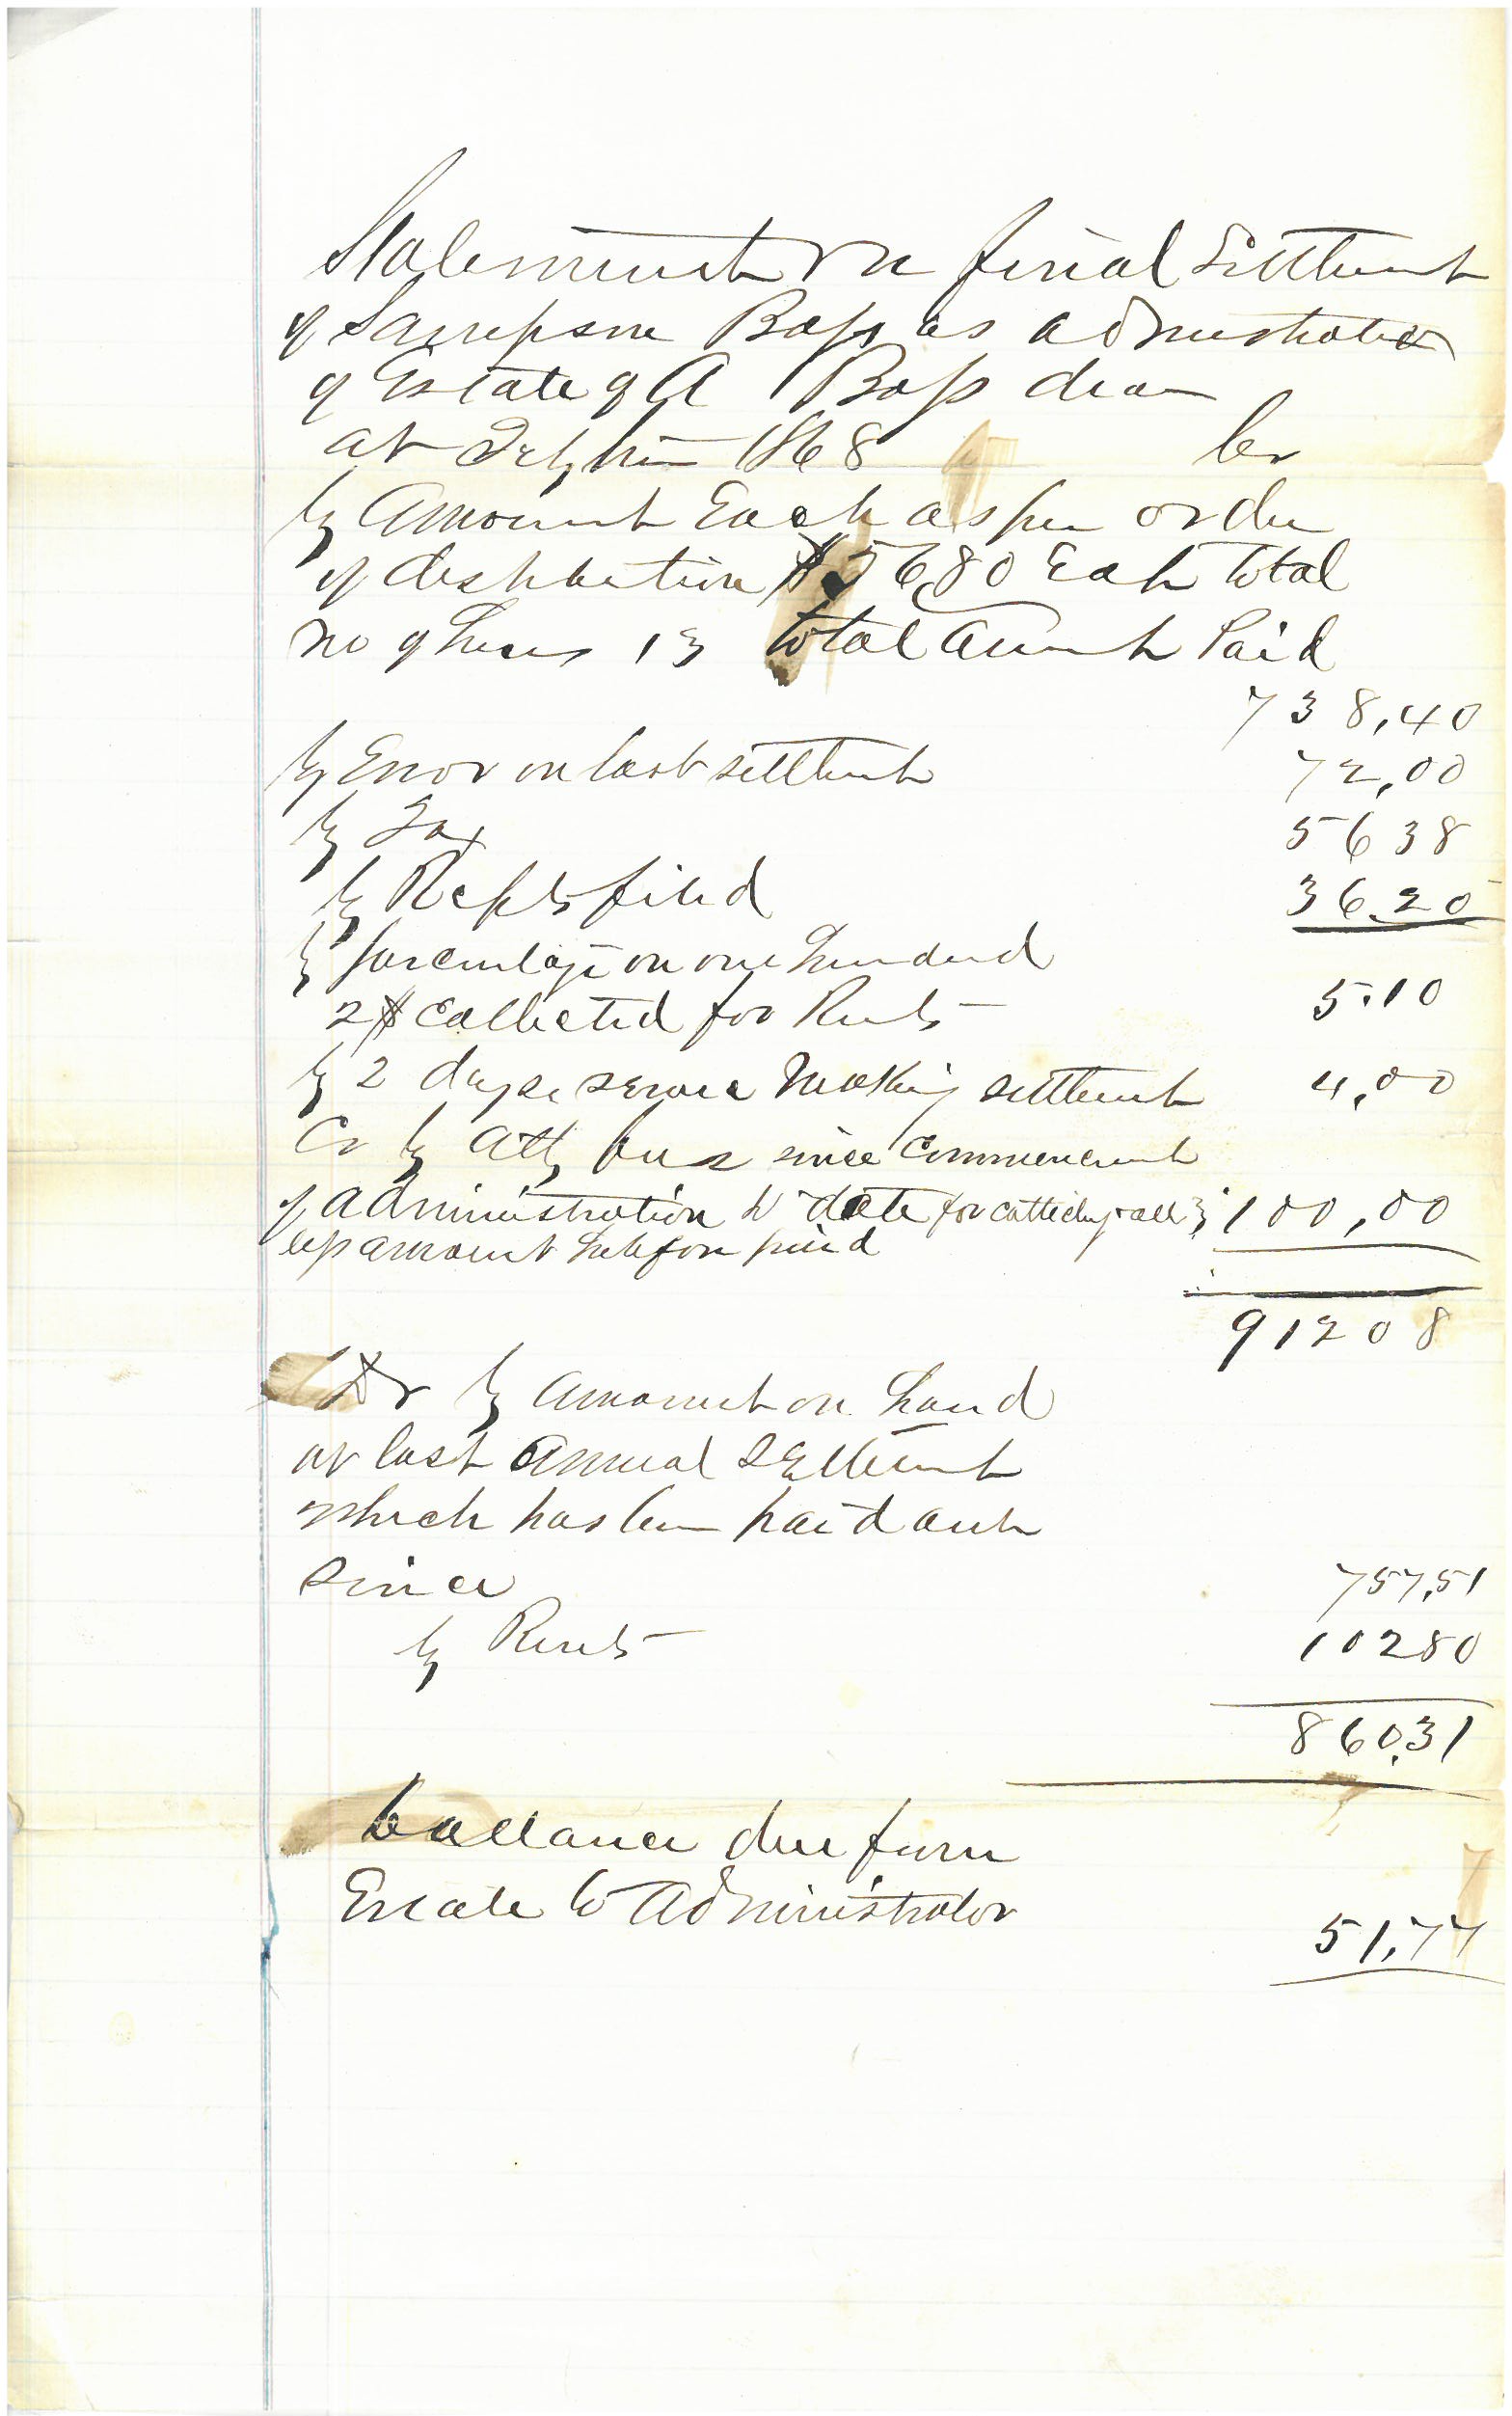 Statement on final Settlement
of Sampson Bass as administrator
of Estate of A Bass
at July 1868 Cr
by Amount Each as per order
of distribution $56,80 Each total
no of heirs 13 total amount Paid
738,40
by Error on last settlement 72,00
by Tax 5638
by Recpts filed 36.20
by percentage on one hundred
2$ collected for Rents 5.10
by 2 days service Making settlement 4,00
Cr by Atty fees since commencement
of administration to date for 100,00
amount before paid
91208
Dr by amount on hand
at last Annual Settlement
which has been paid out
since 757,51
by Rents 10280
860,31
ballance due from
Estate to Administrator 51,77